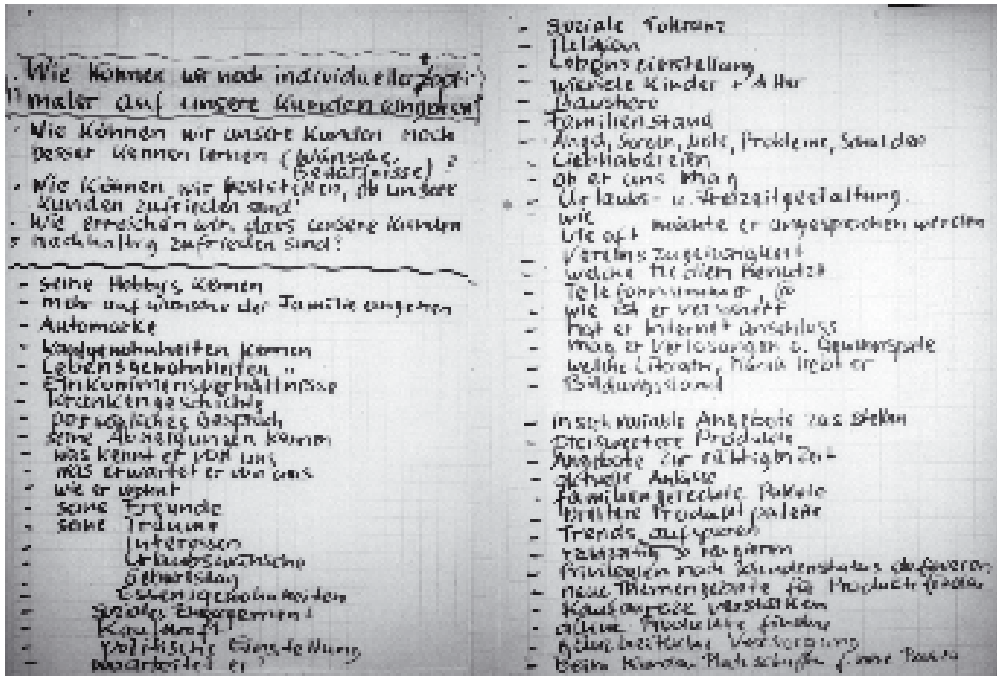 Wie können wir noch individueller, opti-
maler auf unsere Kunden eingehen?
- Wie können wir unsere Kunden noch
besser kennen lernen (Wünsche,
Bedürfnisse) ?
- Wie können wir feststellen, ob unsere
Kunden zufrieden sind?
- Wie erreichen wir, dass unsere Kunden
nachhaltig zufrieden sind?
- seine Hobbys kennen
- mehr auf Wünsche der Familie eingehen
- Automarke
- Kaufgewohnheiten kennen
- Lebensgewohnheiten "
- Einkommensverhältnisse
- Krankengeschichte
- persönliches Gespräch
- seine Abneigungen kennen
- was kennt er von uns
- was erwartet er von uns
- wie er wohnt
- seine Freunde
- seine Träume
- Interessen
- Urlaubswünsche
- Geburtstag
- Essensgewohnheiten
- Soziales Engagement
- Kaufkraft
- politische Einstellung
- wo arbeitet er?
- Soziale Toleranz
- Religion
- Lebenseinstellung
- wieviele Kinder + Alter
- Haustiere
- Familienstand
- Angst, Sorgen, Nöte, Probleme, Schulden
- Liebhabereien
- ob er uns mag
- Urlaubs- u. Freizeitgestaltung
- wie
wie oft möchte er angesprochen werden
- Vereinszugehörigkeit
- welche Medien benutzt
- Telefonnummer, @
- wie ist er versichert
- hat er Internetanschluss
- mag er Verlosungen o. Gewinnspiele
- welche Literatur, Musik liebt er
- Bildungsstand
- Angebote
- Preiswertere Produkte
- Angebote zur richtigen Zeit
- aktuelle Anlässe
- familiengerechte Pakete
- breitere Produktpalette
- Trends aufspüren
- rechtzeitig zu reagieren
- Privilegien nach Kundenstatus
- neue Themengebiete für Produkte finden
- Kaufanreize verstärken
- Produkte finden
- ganzheitliche
- Beim Kunden